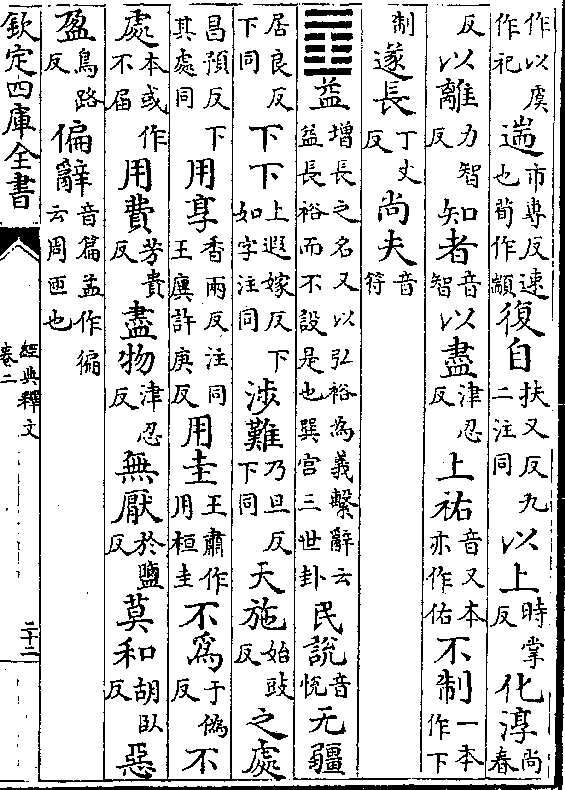 作以虞作祀遄市專反速也荀作顓復自扶又反九二注同以上時掌反化淳尚春
反以離力智反知者音智以盡津忍反上祐音又本亦作佑不制一本作下
制遂長丁丈反尚夫音符
䷩益增長之名又以弘裕為義繫辭云益長裕而不設是也巽宮三世卦民說音悅无疆
居良反下同下下上遐嫁反下如字注同涉難乃旦反下同天施始豉反之處
昌預反下其處同用享香兩反注同王廙許庚反用圭王肅作用桓圭不為于偽反不
處本或作不屆用費芳貴反盡物津忍反無厭於鹽反莫和胡臥反惡
盈烏路反偏辭音篇孟作徧云周匝也
欽定四庫全書
經典釋文
卷二
二十二